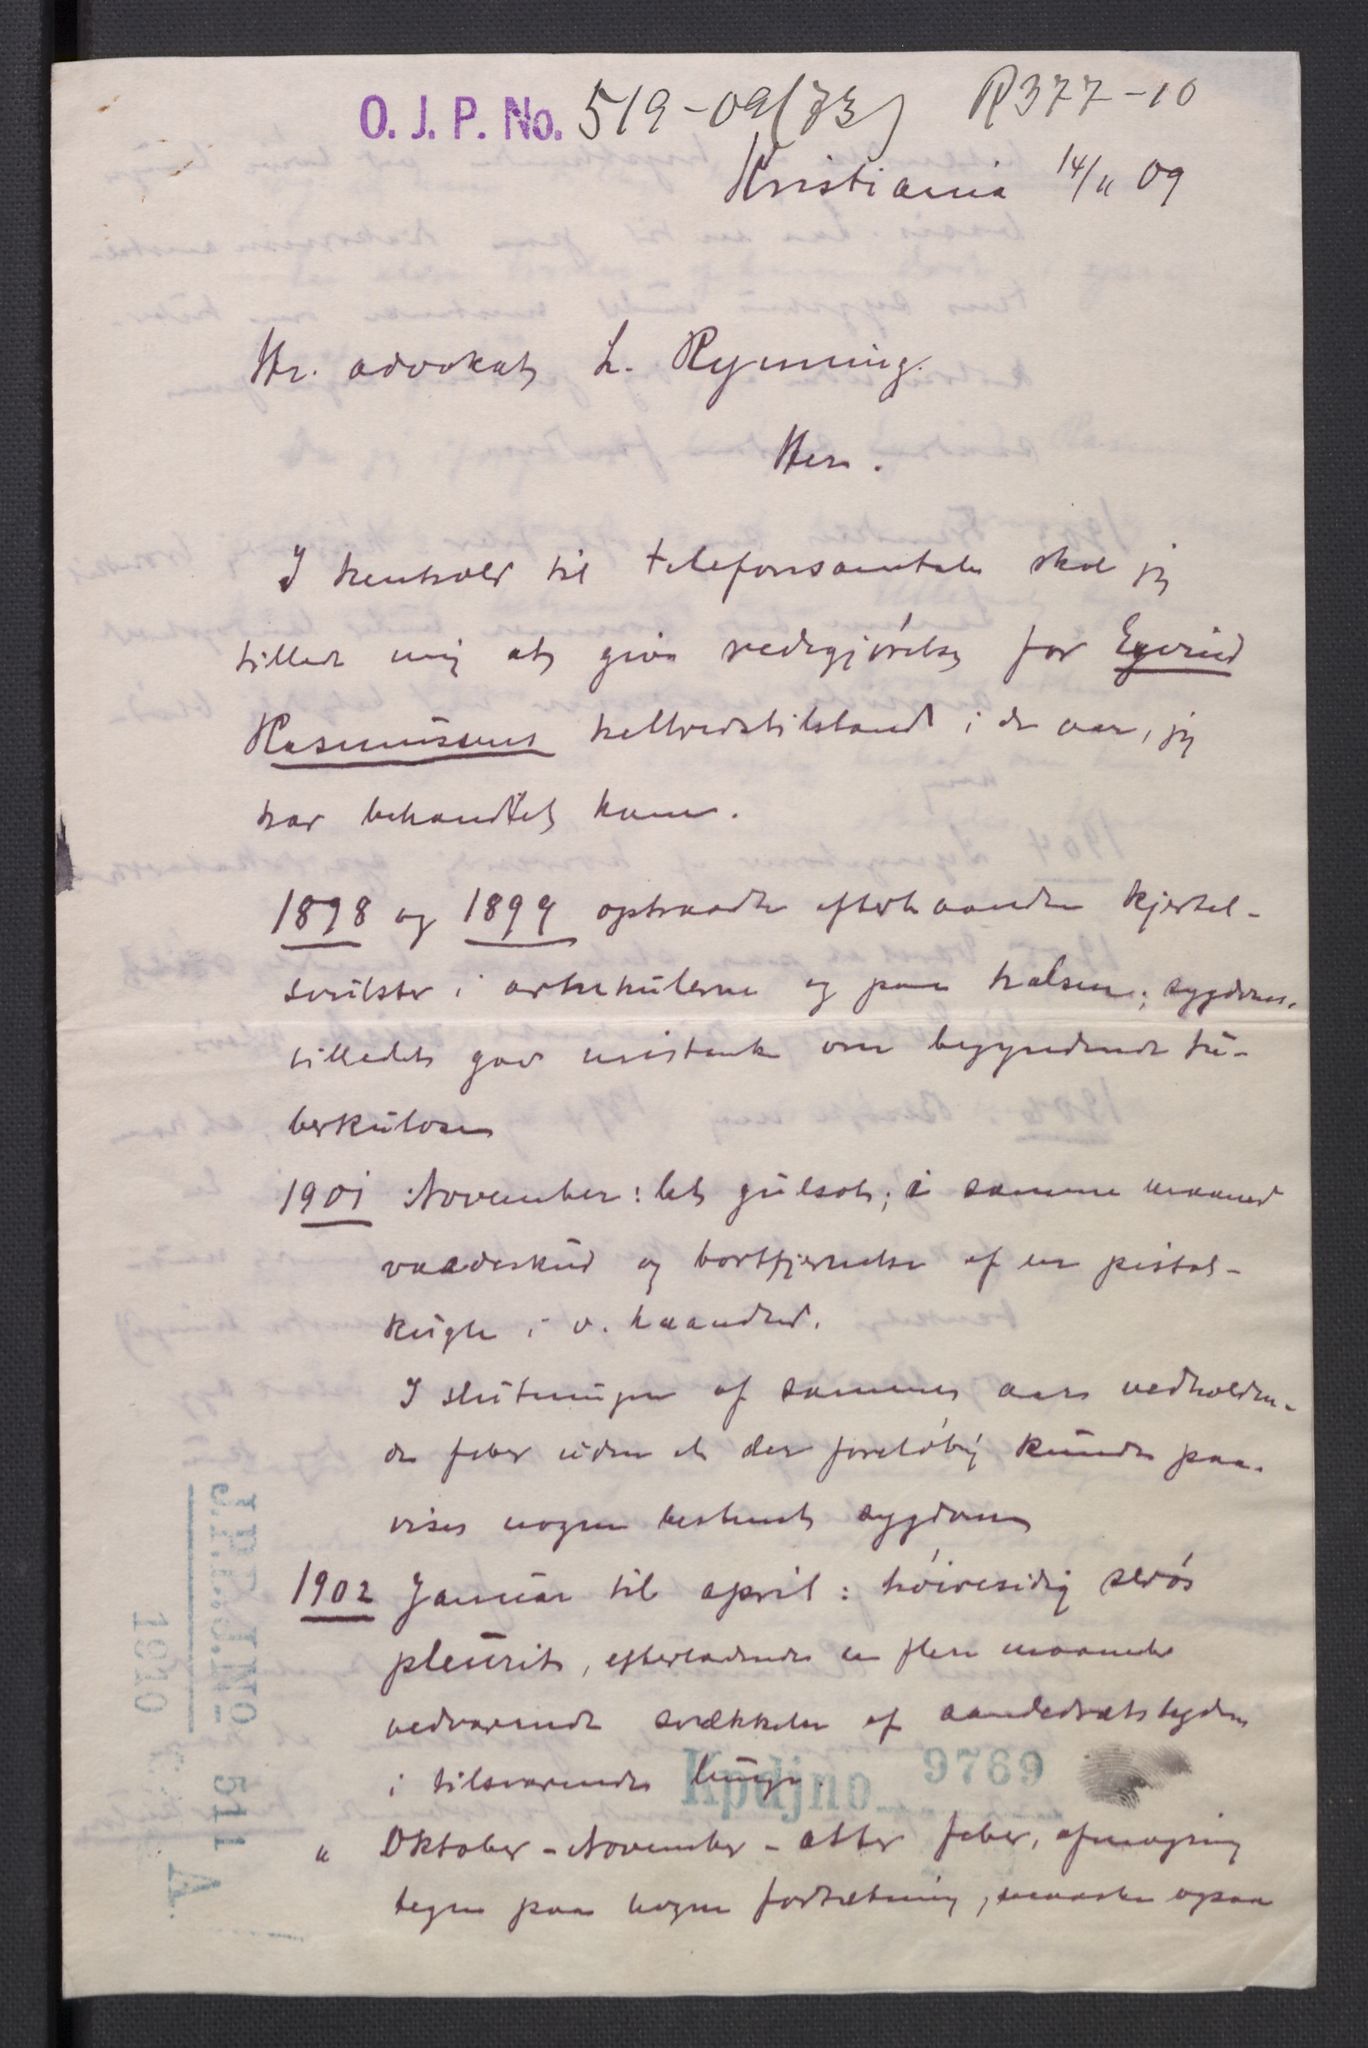 O. J. P. No. 519-09(73) R377-10
Kristiania 14/11 09
Hr. advokat L. Rynning.
Her.
I henhold til telefonsamtale skal jeg
tillade mig at give redegjørelse for Eyvind
Rasmussens helbredstilstand i de aar, jeg
har behandlet ham.
1898 og 1899 optraadte efterhaanden kjertel-
svulster i axelhulerne og paa halsen; sygdoms-
billedet gav mistanke om begyndende tu-
berkulose
1901 November: let gulsot; i samme maaned
vaadeskud og bortfjernelse af en pistol-
kugle i v. haandled.
I slutningen af samme aar vedholden-
de feber uden at der foreløbig kunde paa-
vises nogen bestemt sygdom
1902 Januar til april: høiresidig serøs
pleurit, efterladende en flere maaneder
vedvarende svækkelse af aandedrætslyden
i tilsvarende lunge.
Kpdjno 9769
" Oktober - November - atter feber, afmagring
tegn paa nogen fortætning, maaske ogsaa
J.P.F. No 511 A.
1910